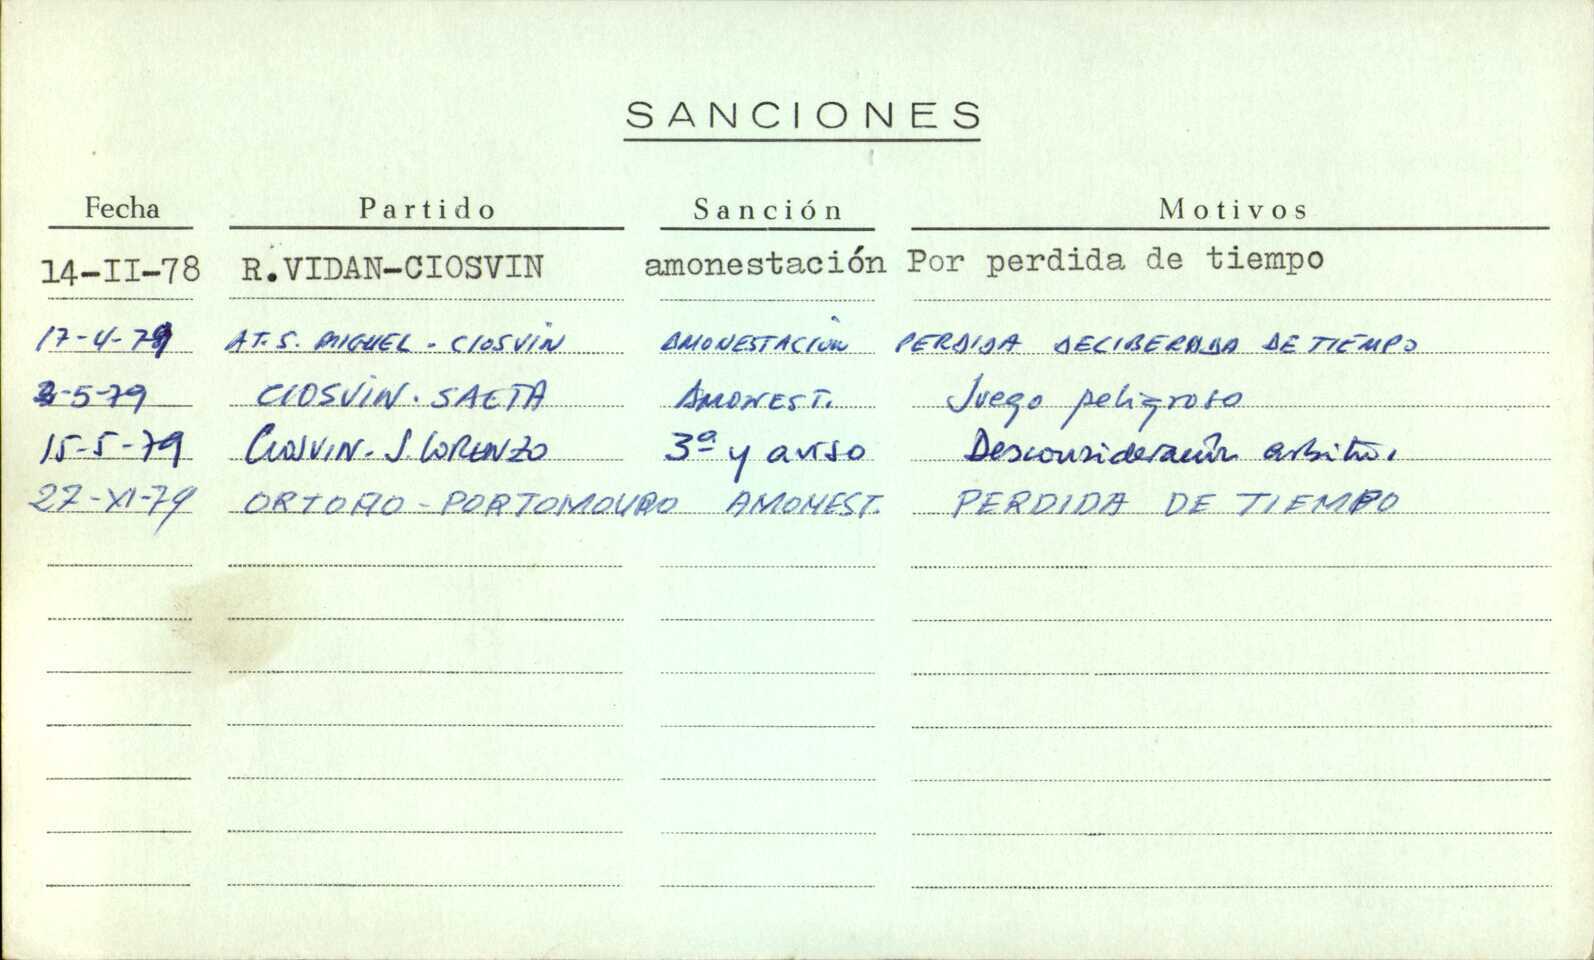 SANCIONES
Fecha Partido Sanción Motivos
14-II-78 R.VIDAN-CIOSVIN amonestación Por perdida de tiempo
17-4-79 AT. S. MIGUEL - CIOSVIN AMONESTACIÓN PERDIDA DELIBERADA DE TIEMPO
-5-79 CIOSVIN - SAETA AMONEST. Juego peligroso
15-5-79 CIOSVIN - S. LORENZO 3ª y aviso Desconsideración arbitro.
27-XI-79 ORTOÑO - PORTOMOURO AMONEST. PERDIDA DE TIEMPO